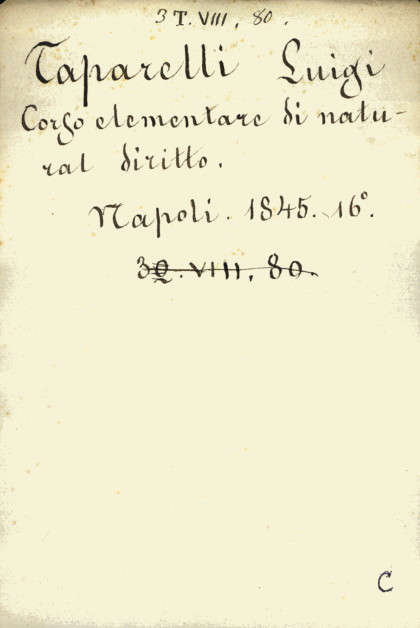 3 T. VIII. 80.
Taparelli Luigi
Corso elementare di natu-
ral diritto.
Napoli. 1845. 16°.
3Q. VIII. 80.
C